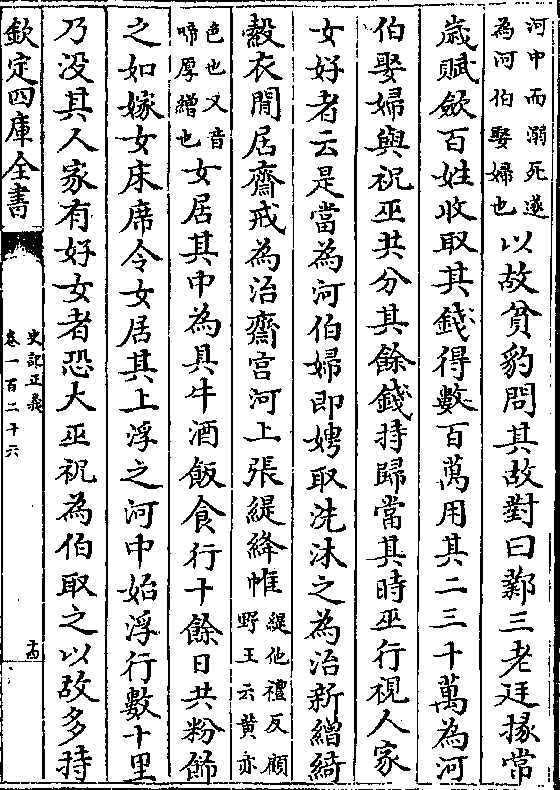 河中而溺死遂
為河伯娶婦也
以故貧豹問其故對曰鄴三老廷掾常
歳賦斂百姓收取其錢得數百萬用其二三十萬為河
伯娶婦與祝巫共分其餘錢持歸當其時巫行視人家
女好者云是當為河伯婦即娉取洗沐之為治新繒綺
縠衣閒居齋戒為治齋宮河上張緹絳帷
緹他禮反顧
野王云黄赤
色也又音
啼厚繒也
女居其中為具牛酒飯食行十餘日共粉飾
之如嫁女床席令女居其上浮之河中始浮行數十里
乃没其人家有好女者恐大巫祝為伯取之以故多持
欽定四庫全書
史記正義
卷一百二十六